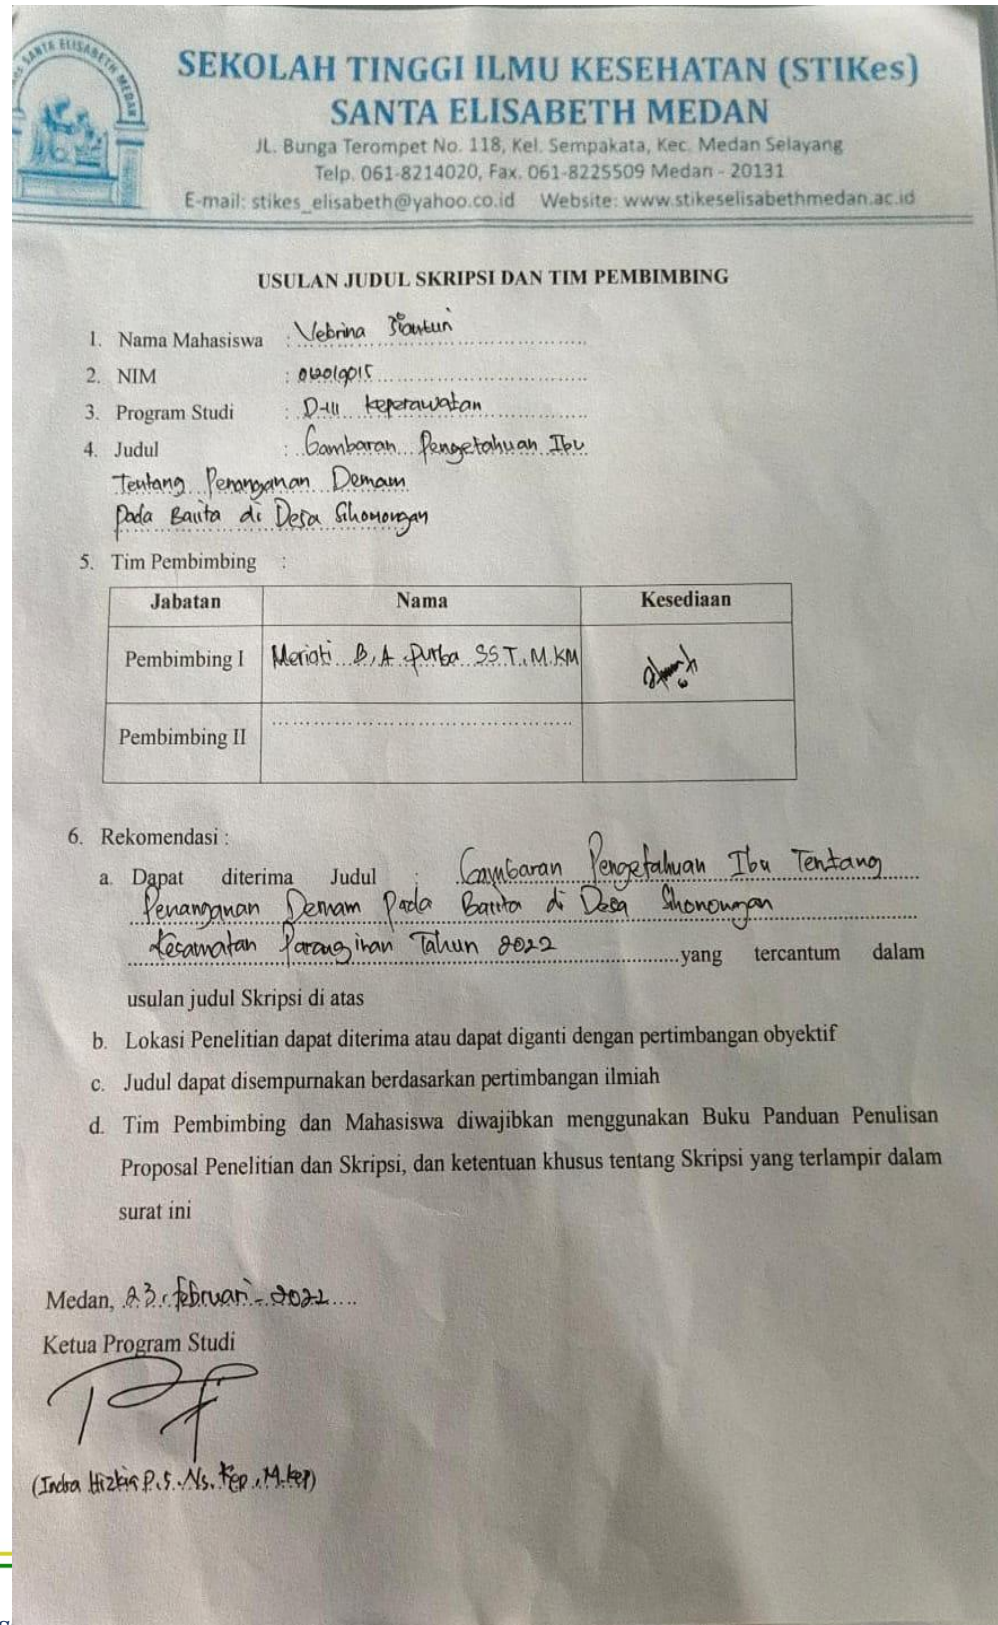 SANTA ELISABETH MEDAN
SEKOLAH TINGGI ILMU KESEHATAN (STIKes)
SANTA ELISABETH MEDAN
JL. Bunga Terompet No. 118, Kel. Sempakata, Kec. Medan Selayang
Telp. 061-8214020, Fax. 061-8225509 Medan - 20131
E-mail: stikes_elisabeth@yahoo.co.id Website: www.stikeselisabethmedan.ac.id
USULAN JUDUL SKRIPSI DAN TIM PEMBIMBING
1. Nama Mahasiswa : Vebrina
2. NIM : 012019015
3. Program Studi : D-III keperawatan
4. Judul : Gambaran Pengetahuan Ibu
Tentang Penanganan Demam
Pada Balita di Desa Sihonongan
5. Tim Pembimbing :
Jabatan Nama Kesediaan
Pembimbing I Meriati B.A Purba SST., M.KM
Pembimbing II
6. Rekomendasi :
a. Dapat diterima Judul : Gambaran Pengetahuan Ibu Tentang
Penanganan Demam Pada Balita di Desa Sihonongan
Kecamatan Paranginan Tahun 2022 yang tercantum dalam
usulan judul Skripsi di atas
b. Lokasi Penelitian dapat diterima atau dapat diganti dengan pertimbangan obyektif
c. Judul dapat disempurnakan berdasarkan pertimbangan ilmiah
d. Tim Pembimbing dan Mahasiswa diwajibkan menggunakan Buku Panduan Penulisan
Proposal Penelitian dan Skripsi, dan ketentuan khusus tentang Skripsi yang terlampir dalam
surat ini
Medan, 23. februari - 2022
Ketua Program Studi
(Indra Hizkia P.S. Ns. Kep., M.kep)